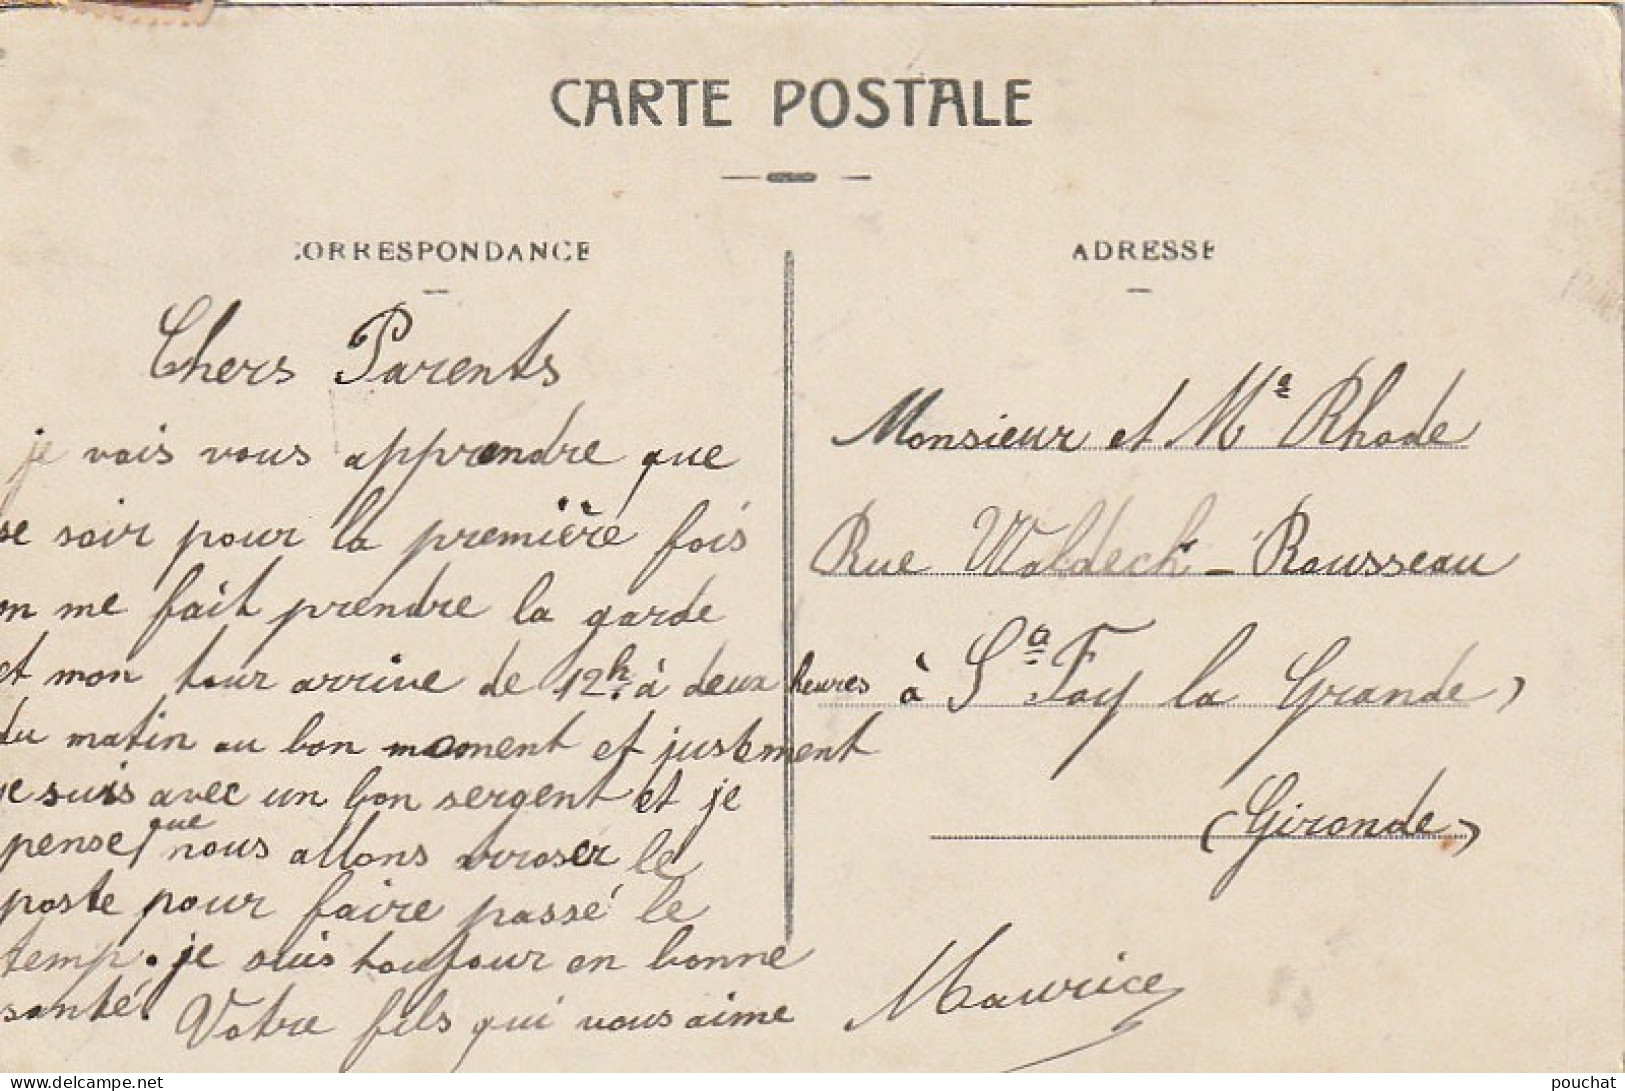 CARTE POSTALE
CORRESPONDANCE
Chers Parents
je vais vous apprendre que
se soir pour la première fois
on me fait prendre la garde
et mon tour arrive de 12h. à deux heures
du matin au bon moment et justement
je suis avec un bon sergent et je
pense que nous allons arroser le
poste pour faire passé le
temp. je suis toujour en bonne
santé. Votre fils qui vous aime
Maurice
ADRESSE
Monsieur et Me Rhode
Rue Waldeck - Rousseau
à Sa Foy la Grande,
(Gironde)
delcampe.net
pouchat